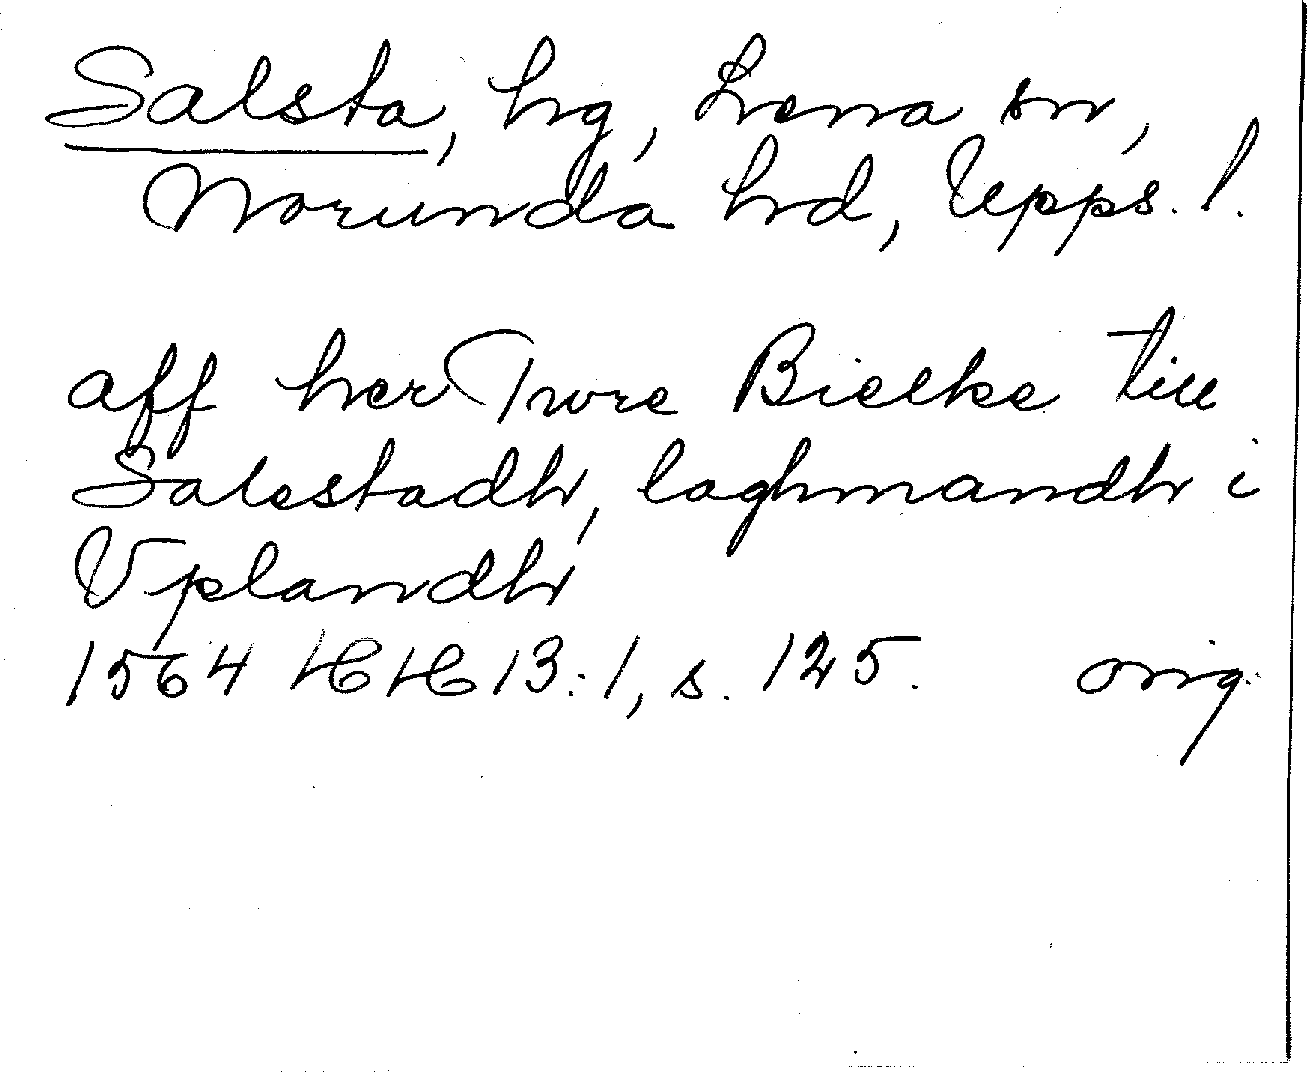 Salsta, hg, Lena sn,
Norunda hd, Upps. l.
aff her Twre Bielke till
Salestadh, laghmandh i
Vplandh
1564 HH 13:1, s. 125. orig.